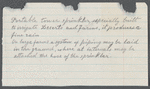 Portable tower sprinkler, especially built
to irrigate                and                 , it produces a
fine rain
On large farms a system of piping may be laid
in the ground, where at intervals may be
attached the hose of the sprinkler.